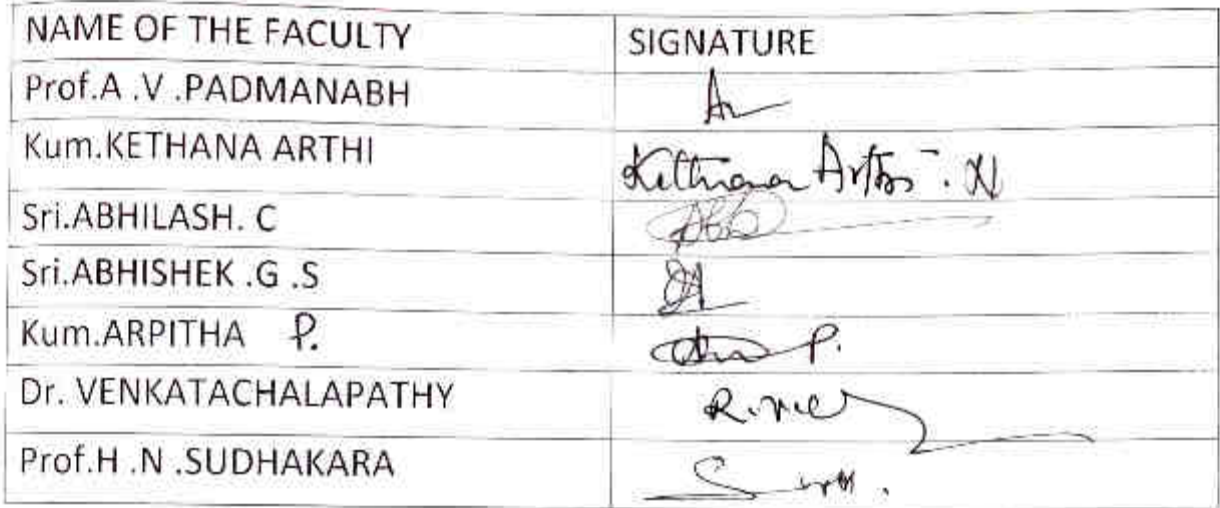 NAME OF THE FACULTY SIGNATURE
Prof.A .V .PADMANABH
Kum.KETHANA ARTHI Kethana Arthi . N
Sri.ABHILASH. C
Sri.ABHISHEK .G .S
Kum.ARPITHA P. P.
Dr. VENKATACHALAPATHY
Prof.H .N .SUDHAKARA